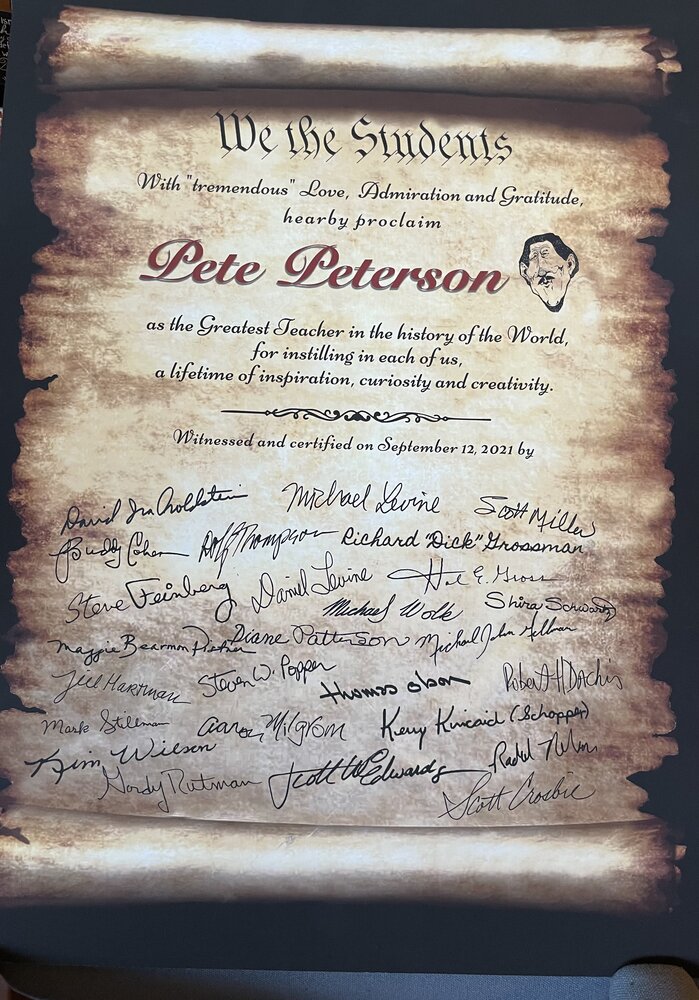 We the Students
With "tremendous" Love, Admiration and Gratitude,
hearby proclaim
Pete Peterson
as the Greatest Teacher in the history of the World,
for instilling in each of us,
a lifetime of inspiration, curiosity and creativity.
Witnessed and certified on September 12, 2021 by
David Ira Goldstein Michael Levine Scott Miller
Buddy Cohen Rolf Thompson Richard "Dick" Grossman
Steve Feinberg Daniel Levine Hal E. Gross
Michael Wolk Shira Schwartz
Maggie Bearmon Pistner Diane Patterson Michael John Gellman
Jill Hartman Steven W. Popper thomas olson Robert H Dachis
Mark Stillman Aaron Milgrom Kerry Kincaid (Schopper)
Kim Wilson Rachel Nelson
Gordy Rutman Scott W Edwards
Scott Crosbie